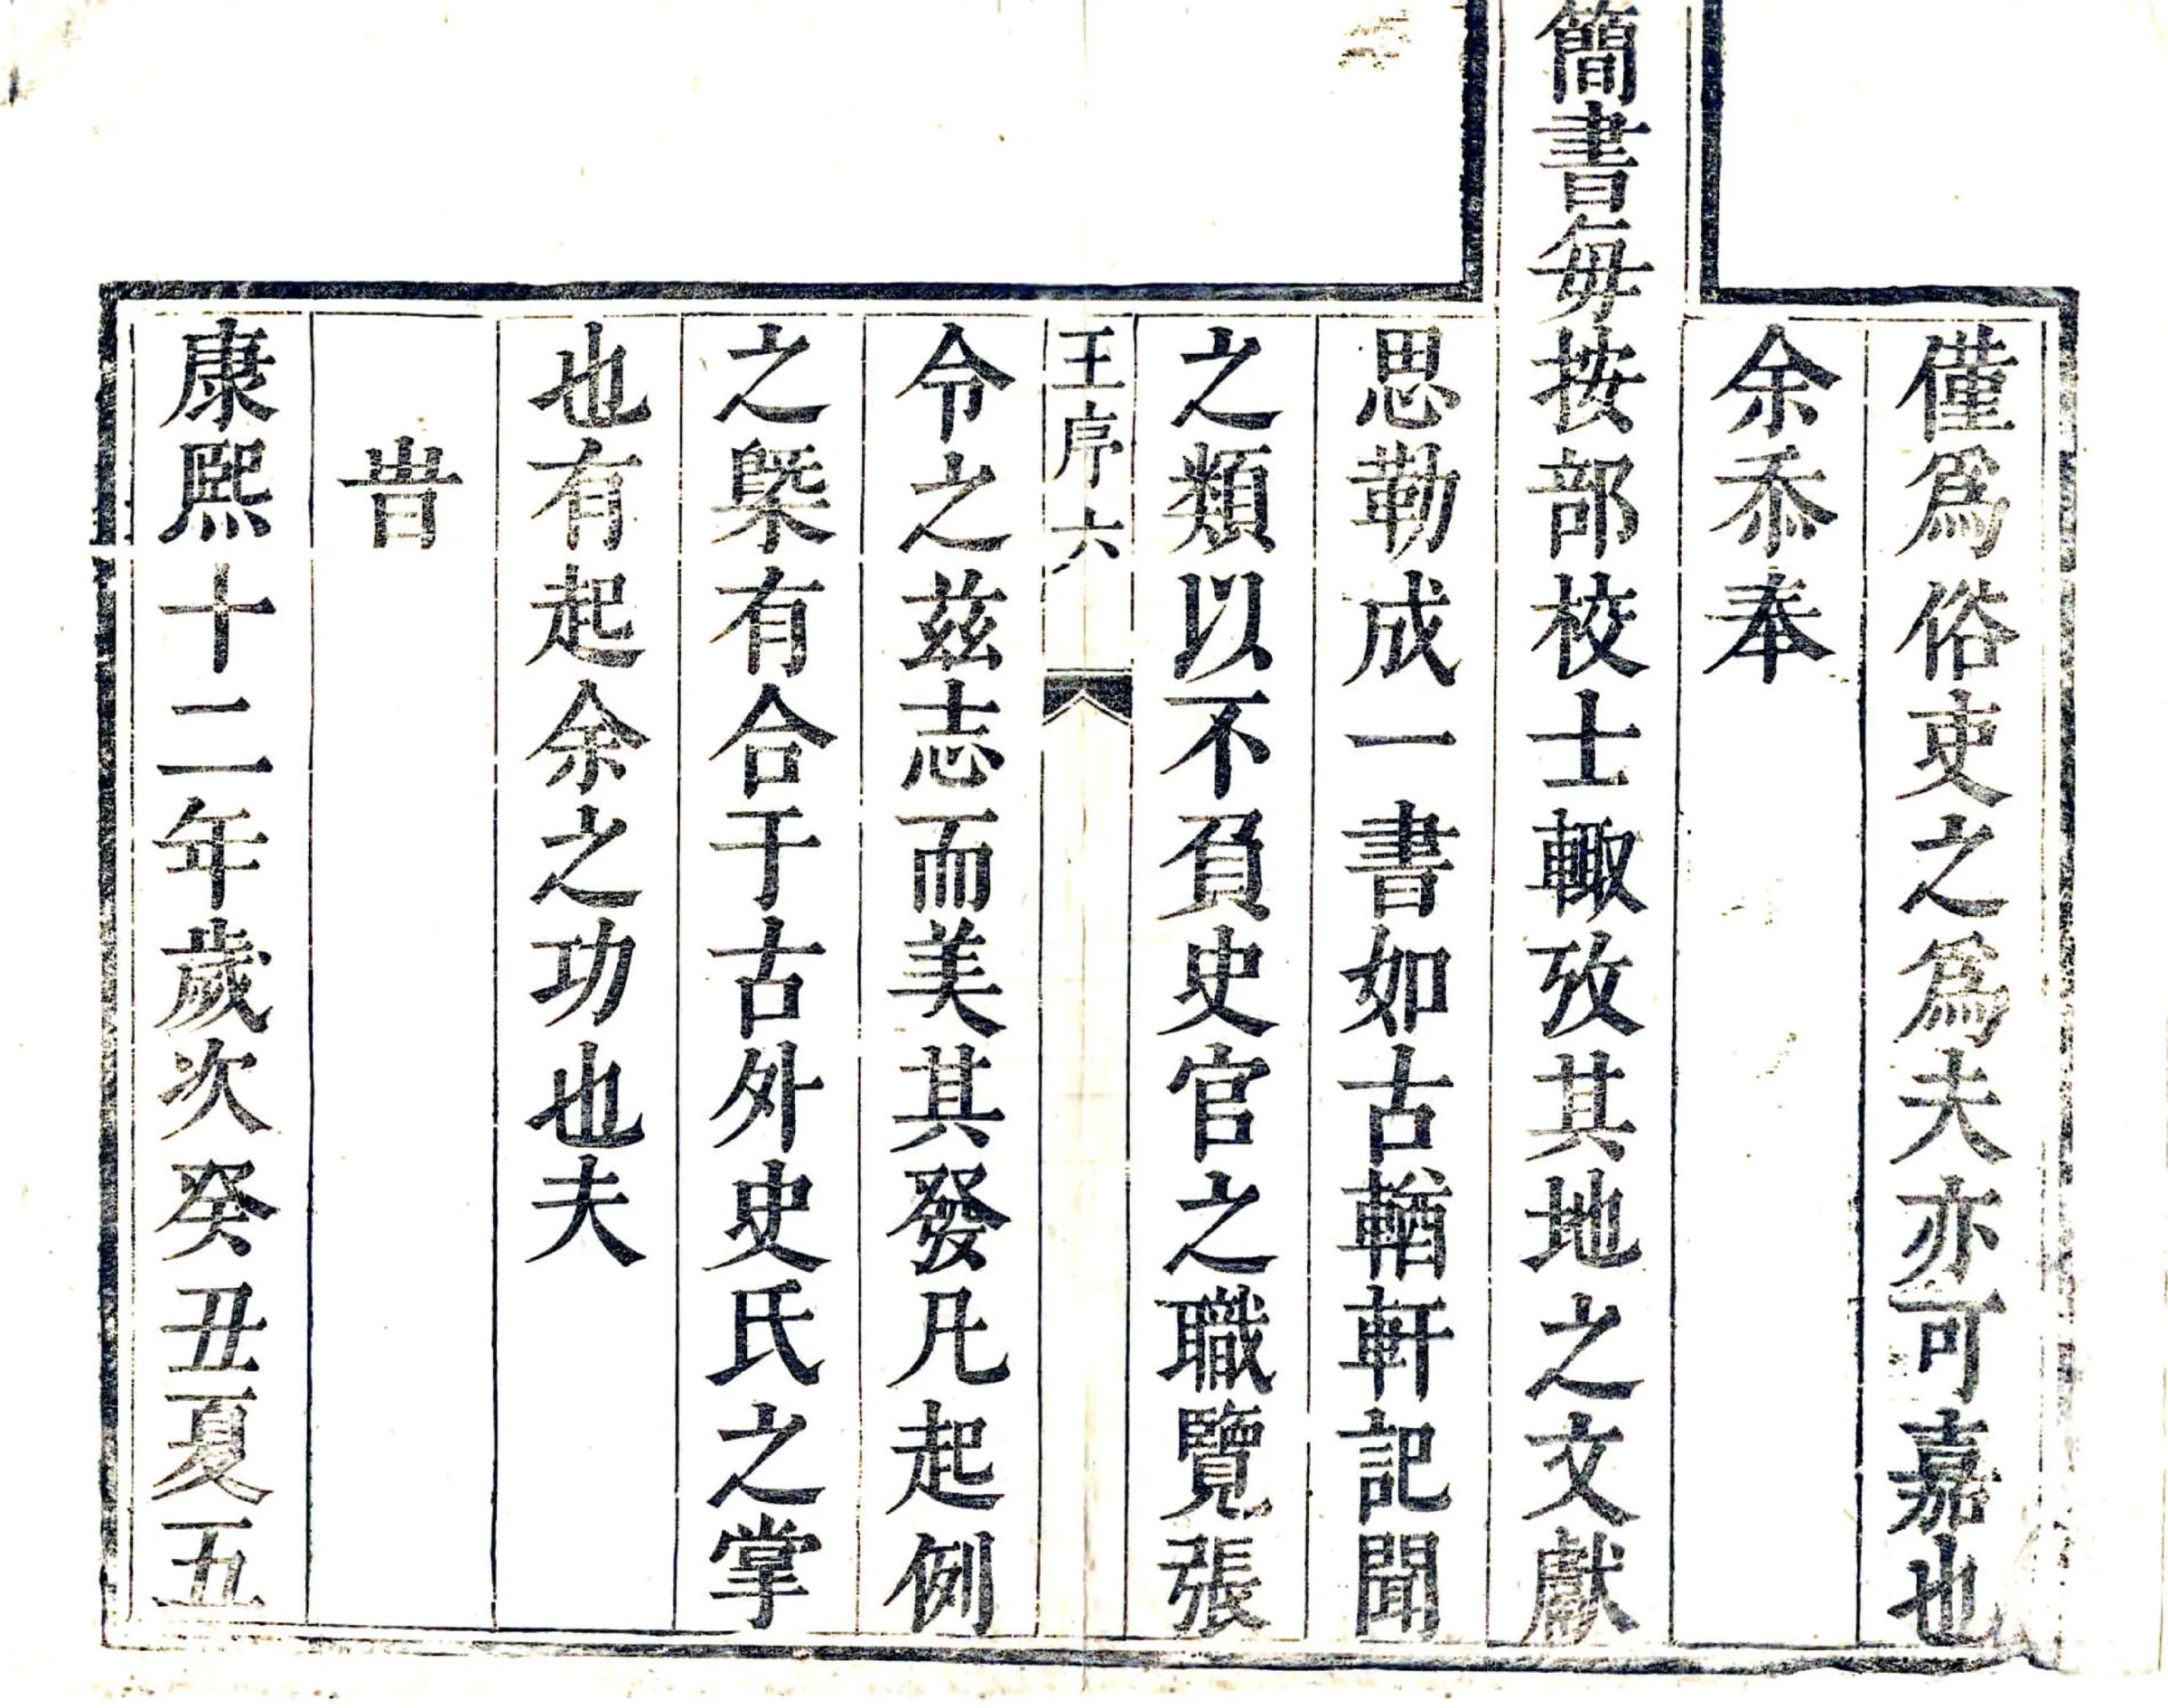 僅爲俗吏之爲夫亦可嘉也
余忝奉
簡書每按部校士輙攷其地之文獻
思勒成一書如古輶軒記聞
之類以不負史官之職覽張
王序六
令之茲志而美其發凡起例
之槩有合于古外史氏之掌
也有起余之功也夫
旹
康熙十二年歲次癸丑夏五